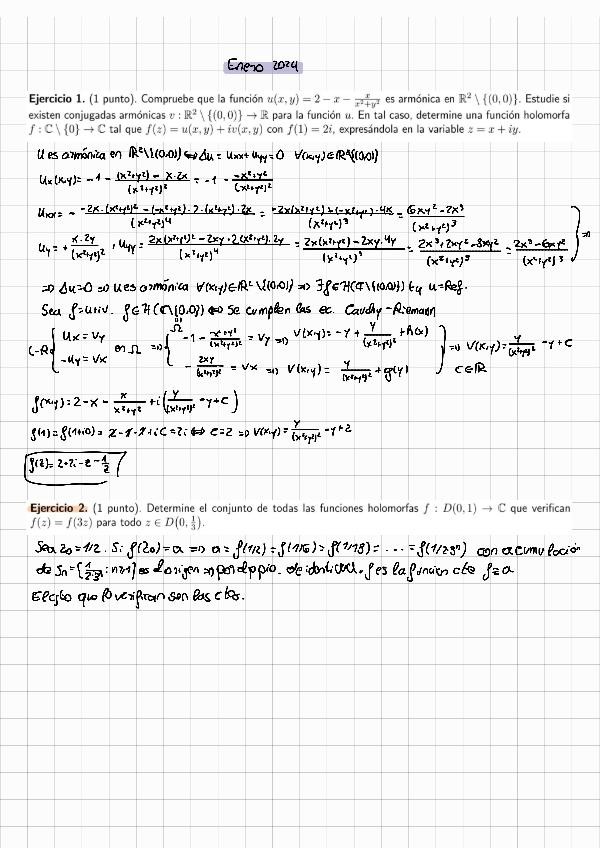 Enero 2024
Ejercicio 1. (1 punto). Compruebe que la función u(x, y) = 2 − x − x/(x²+y²) es armónica en ℝ² \ {(0, 0)}. Estudie si
existen conjugadas armónicas v : ℝ² \ {(0, 0)} → ℝ para la función u. En tal caso, determine una función holomorfa
f : ℂ \ {0} → ℂ tal que f(z) = u(x, y) + iv(x, y) con f(1) = 2i, expresándola en la variable z = x + iy.
U es armónica en ℝ²\{(0,0)} ⇔ Δu = Uxx + Uyy = 0 ∀(x,y)∈ℝ²\{(0,0)}
Ux(x,y) = -1 - ((x²+y²) - x·2x)/(x²+y²)² = -1 - (-x²+y²)/(x²+y²)²
Uxx = - (-2x·(x²+y²)² - (-x²+y²)·2·(x²+y²)·2x)/(x²+y²)⁴ = (-2x(x²+y²) - (-x²+y²)·4x)/(x²+y²)³ = (6xy² - 2x³)/(x²+y²)³
Uy = + (x·2y)/(x²+y²)² , Uyy = (2x(x²+y²)² - 2xy·2(x²+y²)·2y)/(x²+y²)⁴ = (2x(x²+y²) - 2xy·4y)/(x²+y²)³ = (2x³+2xy²-8xy²)/(x²+y²)³ = (2x³-6xy²)/(x²+y²)³ ⇒
⇒ Δu=0 ⇒ U es armónica ∀(x,y)∈ℝ²\{(0,0)} ⇒ ∃f∈H(ℂ\{(0,0)}) tq u=Ref.
Sea f=u+iv. f∈H(ℂ\{0,0}) ⇔ Se cumplen las ec. Cauchy-Riemann
Ω
C-R { Ux = Vy en Ω ⇒ { -1 - (-x²+y²)/(x²+y²)² = Vy ⇒ V(x,y) = -y + y/(x²+y²)² + h(x)
-Uy = Vx - 2xy/(x²+y²)² = Vx ⇒ V(x,y) = y/(x²+y²)² + g(y) } ⇒ V(x,y) = y/(x²+y²)² - y + C
C∈ℝ
f(x,y) = 2 - x - x/(x²+y²) + i(y/(x²+y²)² - y + C)
f(1) = f(1+i0) = 2-1-1+iC = 2i ⇔ C=2 ⇒ V(x,y) = y/(x²+y²)² - y + 2
f(z) = 2+2i - z - 1/z
Ejercicio 2. (1 punto). Determine el conjunto de todas las funciones holomorfas f : D(0, 1) → ℂ que verifican
f(z) = f(3z) para todo z ∈ D(0, 1/3).
Sea z₀ = 1/2. Si f(z₀) = a ⇒ a = f(1/2) = f(1/6) = f(1/18) = ... = f(1/2·3ⁿ) con acumulación
de Sn = {1/2·3ⁿ : n≥1} es el origen ⇒ por el ppio. de identidad. f es la función cte f≡a
El cjto que lo verifican son las ctes.